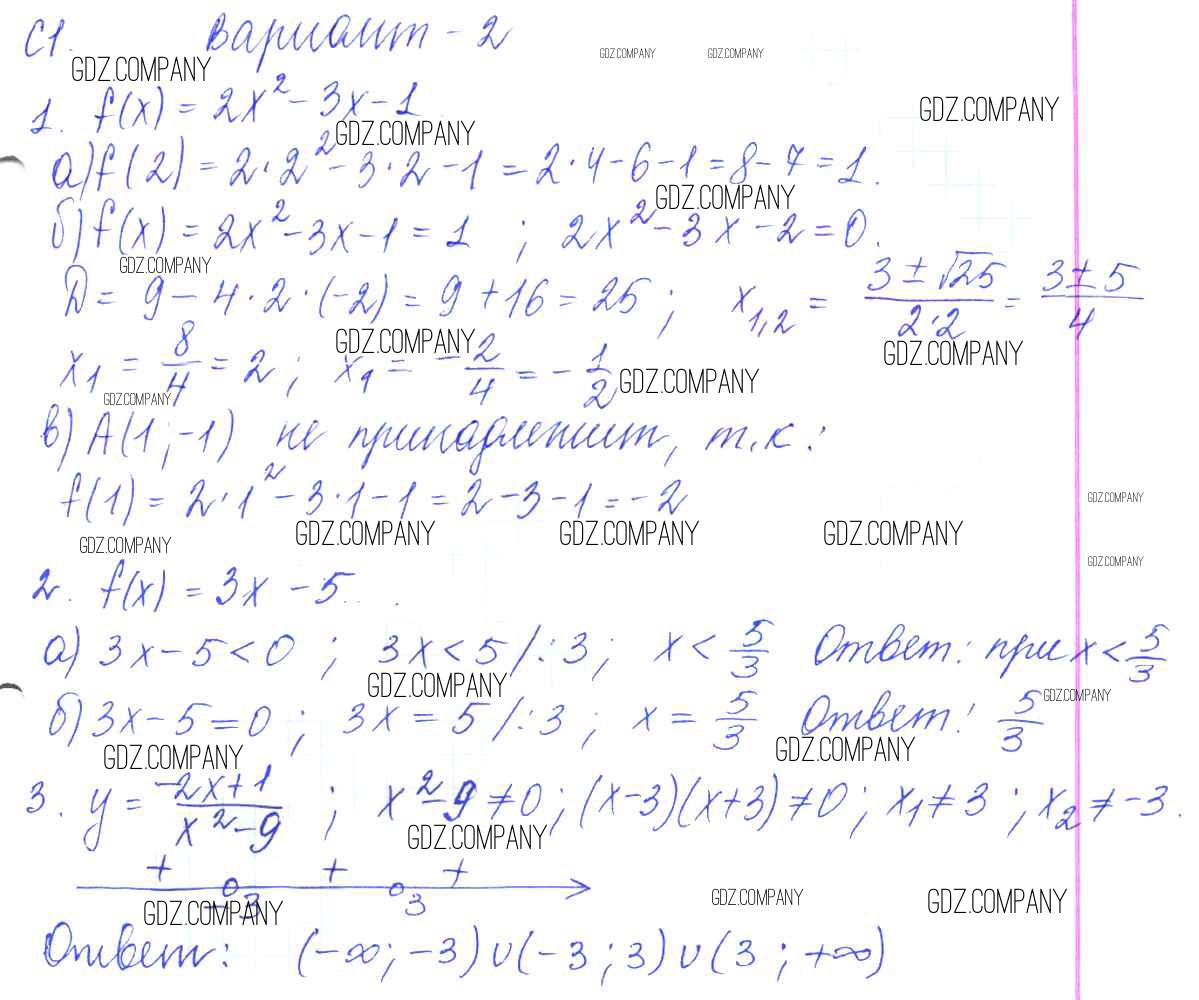 С1. Вариант - 2
GDZ.COMPANY GDZ.COMPANY GDZ.COMPANY
1. f(x) = 2x² - 3x - 1
GDZ.COMPANY GDZ.COMPANY
а) f(2) = 2·2² - 3·2 - 1 = 2·4 - 6 - 1 = 8 - 7 = 1.
GDZ.COMPANY
б) f(x) = 2x² - 3x - 1 = 1 ; 2x² - 3x - 2 = 0.
GDZ.COMPANY
D = 9 - 4·2·(-2) = 9 + 16 = 25 ; x₁,₂ = (3 ± √25)/(2·2) = (3 ± 5)/4
GDZ.COMPANY GDZ.COMPANY
x₁ = 8/4 = 2 ; x₁ = -2/4 = -1/2
GDZ.COMPANY GDZ.COMPANY
в) A(1 ; -1) не принадлежит, т.к:
f(1) = 2·1² - 3·1 - 1 = 2 - 3 - 1 = -2
GDZ.COMPANY
GDZ.COMPANY GDZ.COMPANY GDZ.COMPANY GDZ.COMPANY
GDZ.COMPANY
2. f(x) = 3x - 5
а) 3x - 5 < 0 ; 3x < 5 /:3 ; x < 5/3 Ответ: при x < 5/3
GDZ.COMPANY GDZ.COMPANY
б) 3x - 5 = 0 ; 3x = 5 /:3 ; x = 5/3 Ответ: 5/3
GDZ.COMPANY GDZ.COMPANY
3. y = (-2x+1)/(x²-9) ; x² - 9 ≠ 0 ; (x-3)(x+3) ≠ 0 ; x₁ ≠ 3 ; x₂ ≠ -3.
GDZ.COMPANY
+ + +
-3 3
GDZ.COMPANY GDZ.COMPANY GDZ.COMPANY
Ответ: (-∞; -3) ∪ (-3 ; 3) ∪ (3 ; +∞)